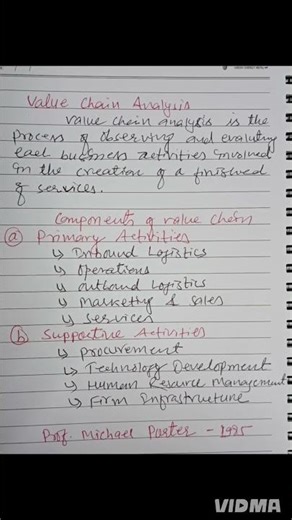 Value Chain Analysis
Value chain analysis is the
process of observing and evaluting
each business activities involved
in the creation of a finished
of services.
Components of value chain
(a) Primary Activities
↳ Inbound Logistics
↳ Operations
↳ outbound Logistics
↳ Marketing & Sales
↳ Services
(b) Supportive Activities
↳ procurement
↳ Technology Development
↳ Human Resource Management
↳ Firm Infrastructure
Prof. Michael Porter - 1985
VIDMA